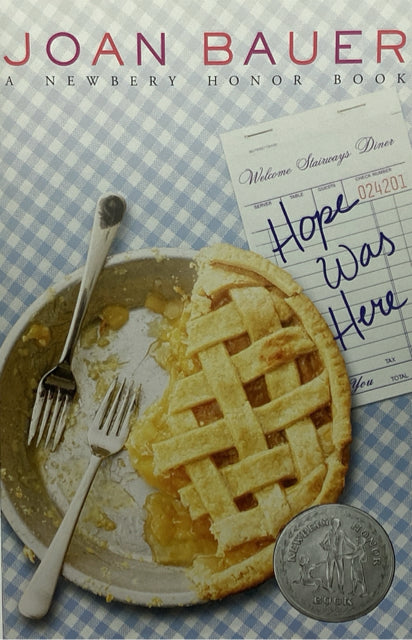 JOAN BAUER
A NEWBERY HONOR BOOK
Welcome Stairways Diner
SERVER TABLE GUESTS CHECK NUMBER
024201
Hope
Was
Here
TAX
You TOTAL
NEWBERY HONOR
BOOK